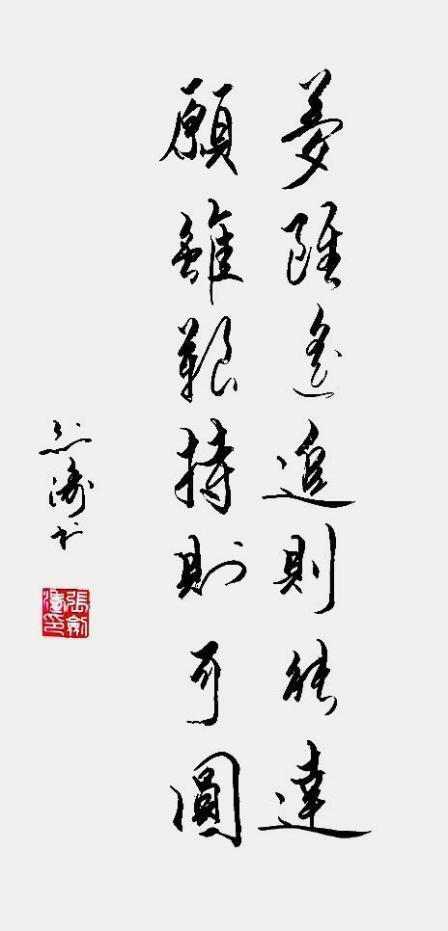 夢雖遙追則能達
願雖艱持則可圓
濤书
張劍
濤印